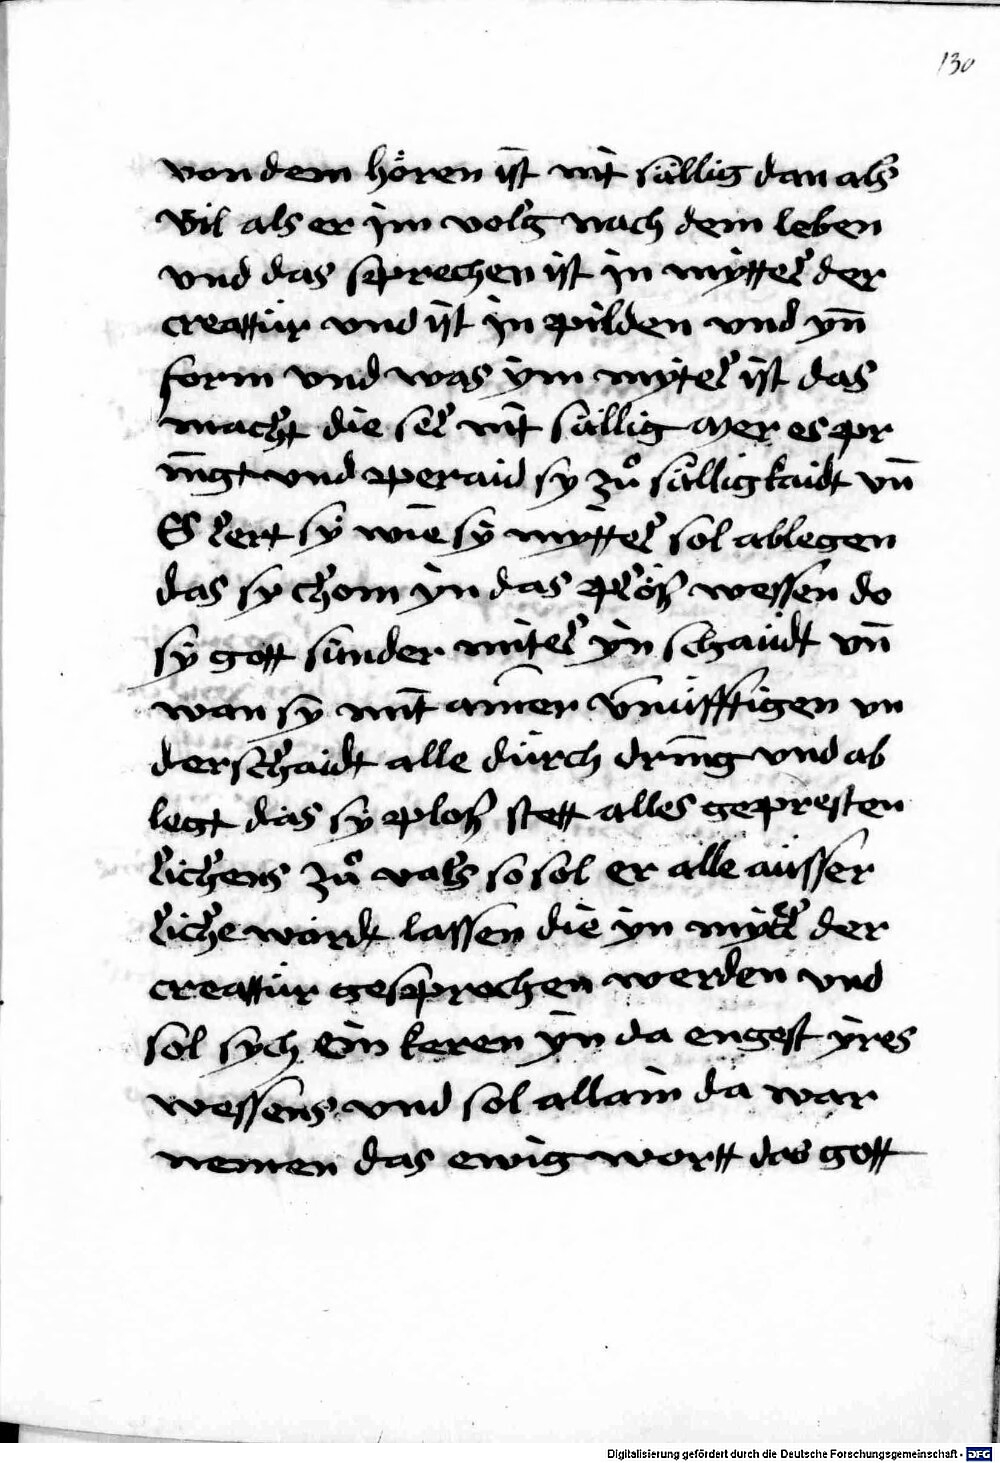 130
von dem hören ist nit sällig dan als
vil als er jm volg nach dem leben
vnd das sprechen ist jn myttel der
creattur vnd ist jn pilden vnd yn̄
form vnd was ym mytel ist das
macht die sel nit sällig mer es pr
ingt vnd peraid sy zů sälligkaidt vn̄
Es lert sy wie sy myttel sol ablegen
das sy chom yn das plös wessen do
sy gott sunder mitel yn schaudt vn̄
wan sy mit ainer v̄nufftigen vn
derschaidt alle durch dring vnd ab
legt das sy plos stett alles gepresten
lichens zů vals so sol er alle ausser
liche wordt lassen die yn myttel der
creattur gesprochen werden vnd
sol sych ein keren yn da engest yres
wessens vnd sol allain da war
nemen das ewig wortt das gott
Digitalisierung gefördert durch die Deutsche Forschungsgemeinschaft - DFG